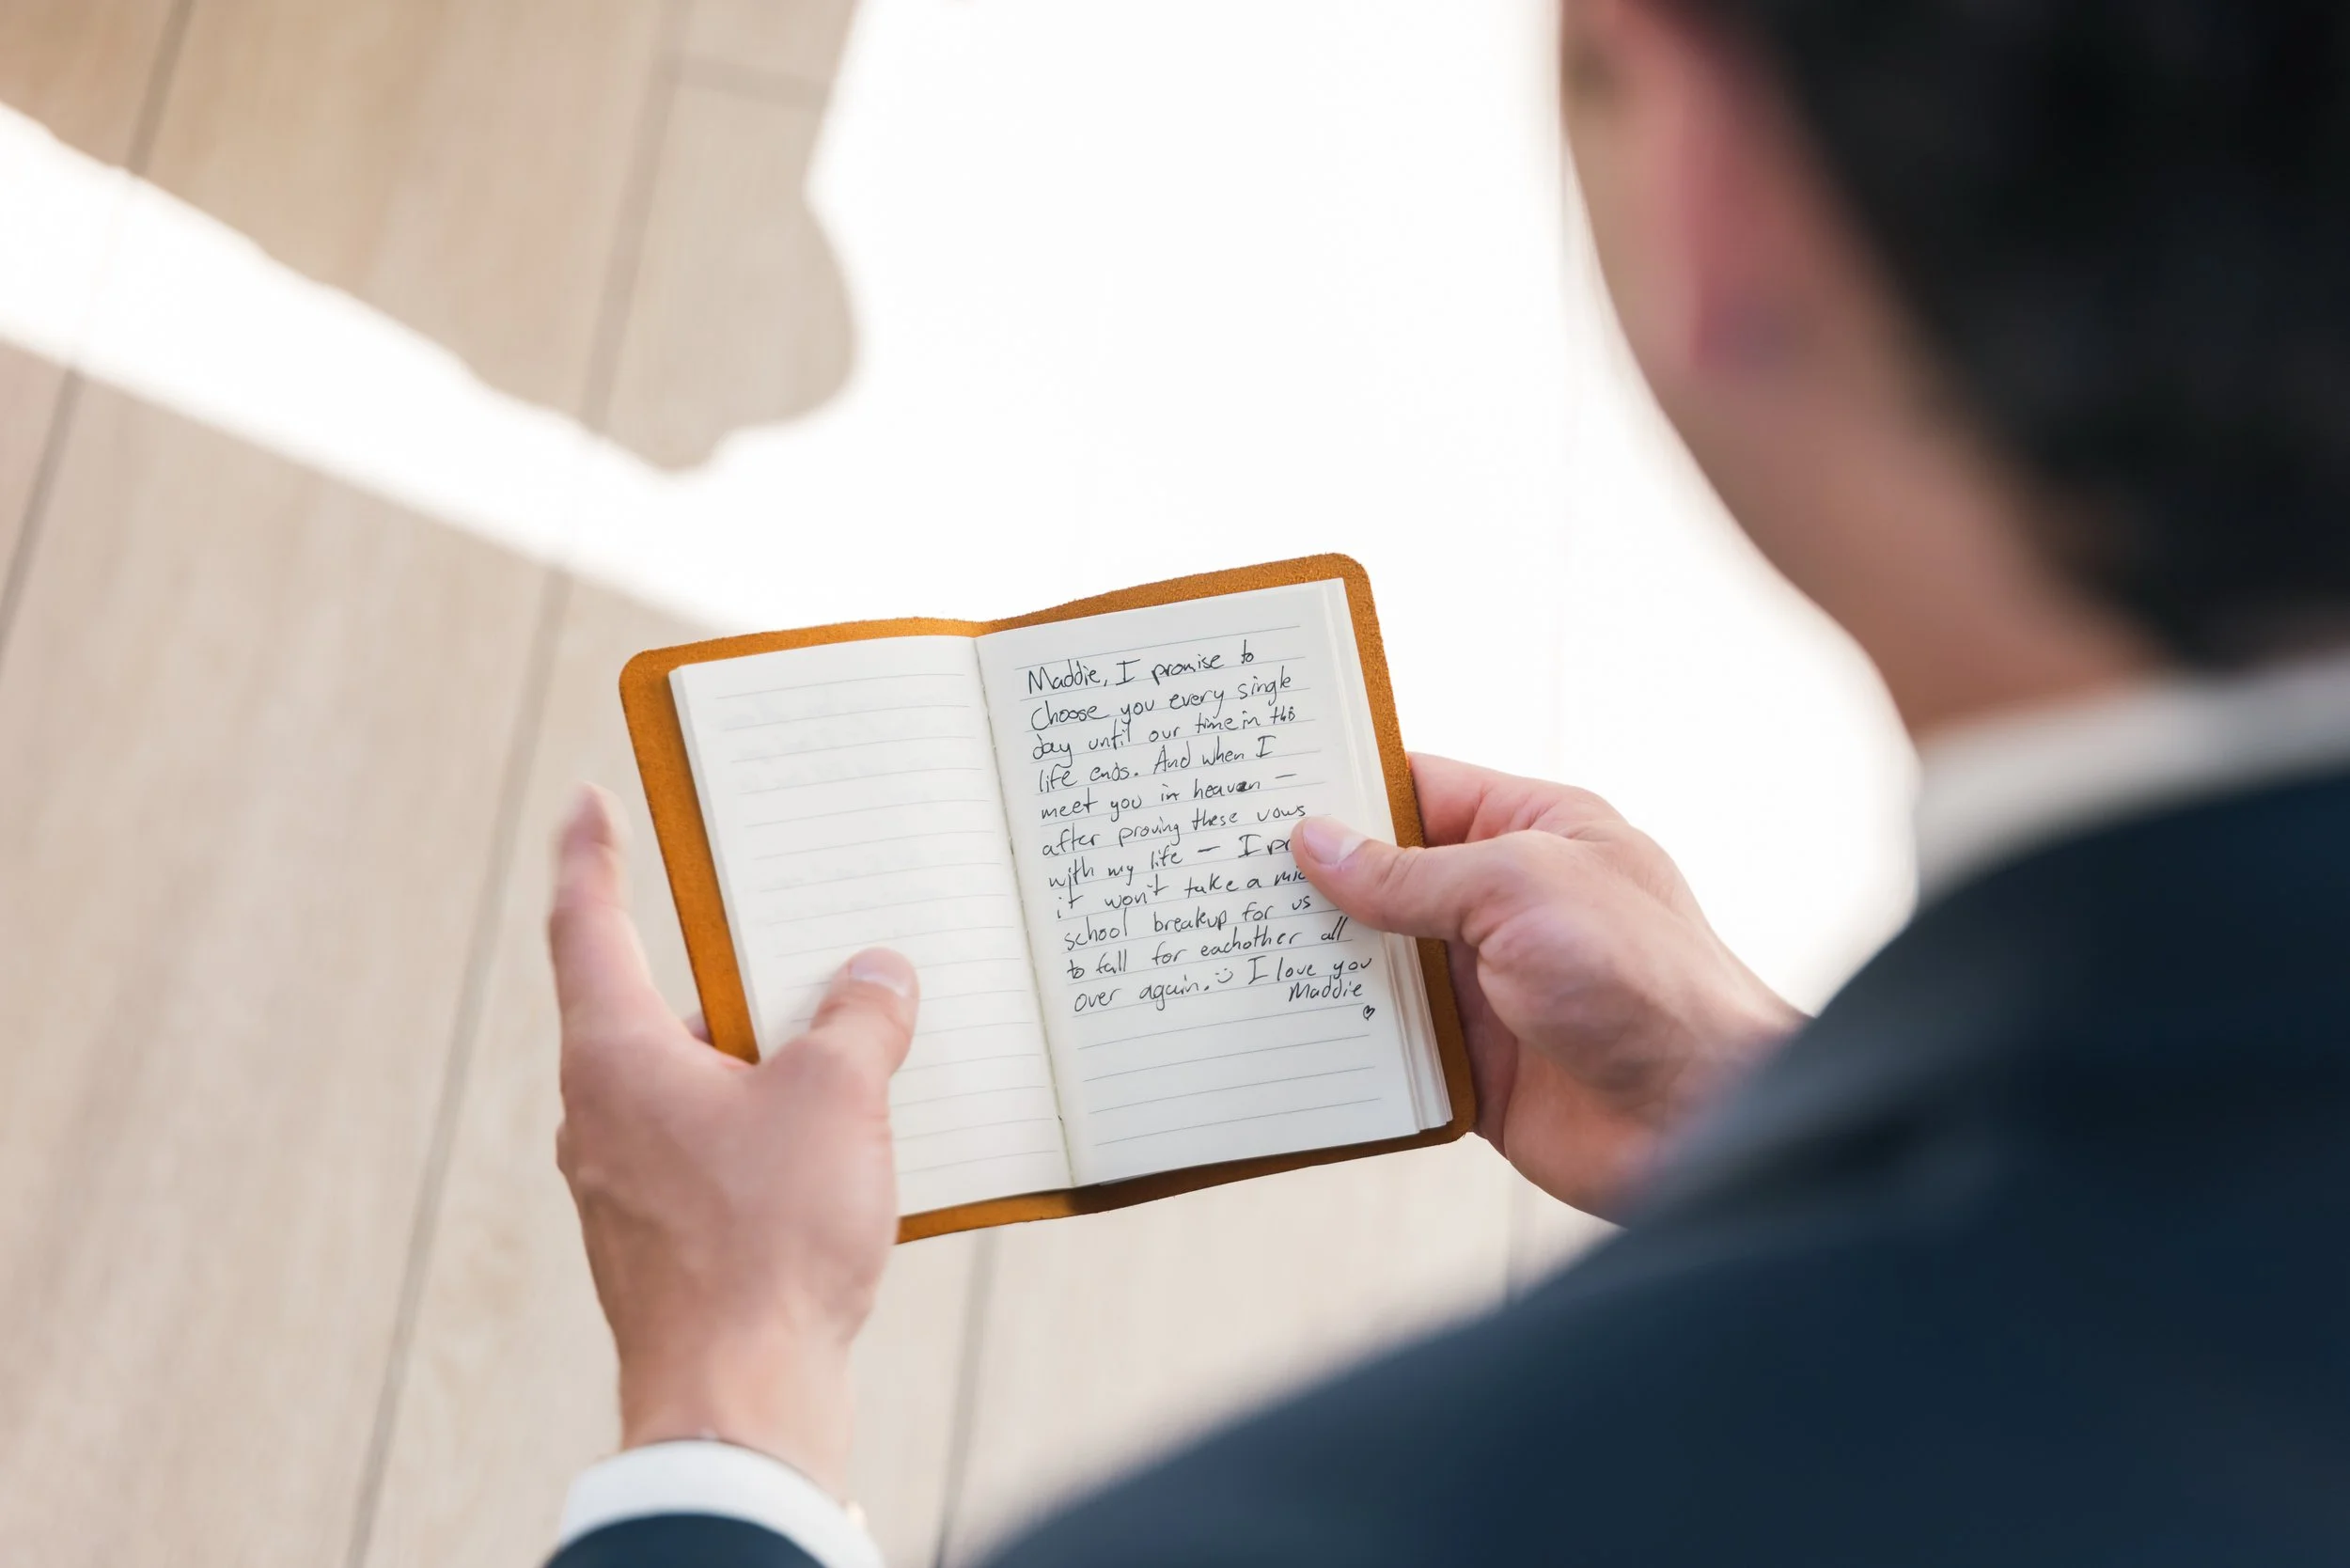 Maddie, I promise to
Choose you every single
day until our time in this
life ends. And when I
meet you in heaven —
after proving these vows
with my life — I
it won't take a
school breakup for us
to fall for eachother all
over again. :) I love you
Maddie
♡